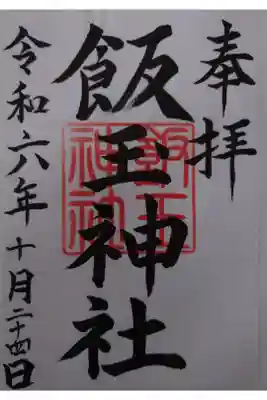 奉拝
飯玉神社
飯玉
神社
令和六年十月二十四日